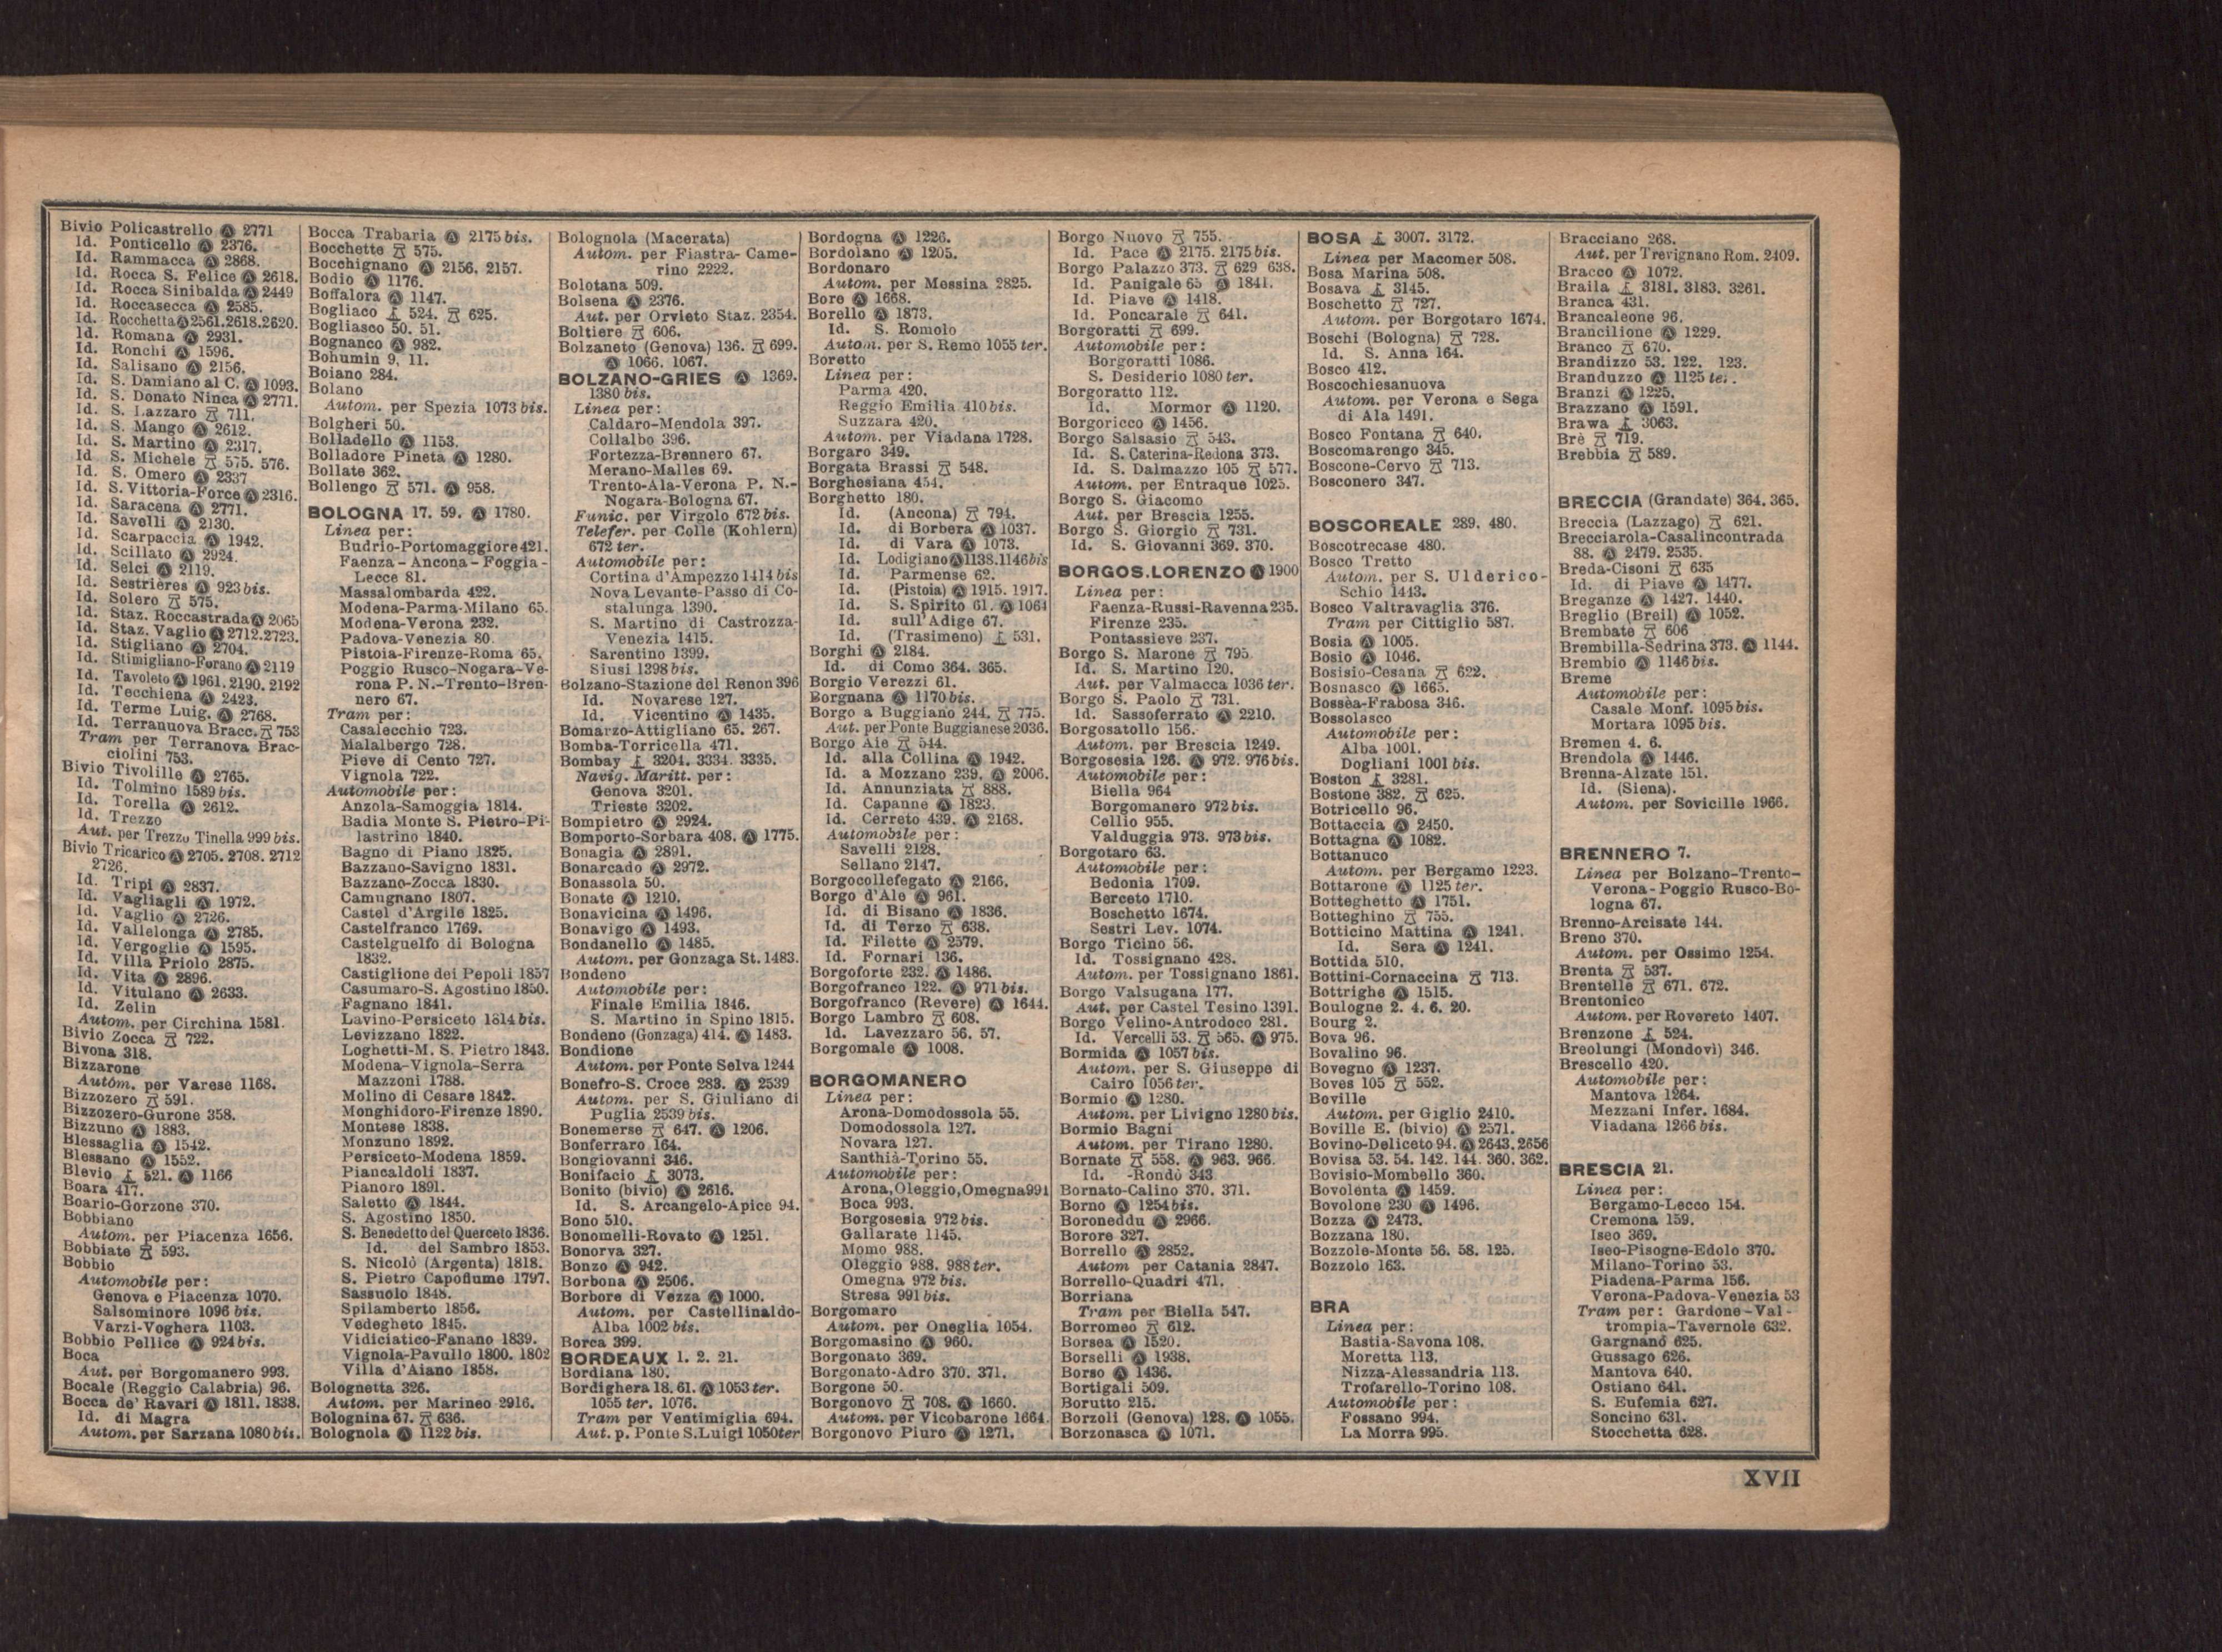 Bivio Policastrello Ⓐ 2771
Id. Ponticello Ⓐ 2376.
Id. Rammacca Ⓐ 2868.
Id. Rocca S. Felice Ⓐ 2618.
Id. Rocca Sinibalda Ⓐ 2449
Id. Roccasecca Ⓐ 2585.
Id. Rocchetta Ⓐ 2561.2618.2620.
Id. Romana Ⓐ 2931.
Id. Ronchi Ⓐ 1596.
Id. Salisano Ⓐ 2156.
Id. S. Damiano al C. Ⓐ 1093.
Id. S. Donato Ninca Ⓐ 2771.
Id. S. Lazzaro 711.
Id. S. Mango Ⓐ 2612.
Id. S. Martino Ⓐ 2317.
Id S. Michele 575. 576.
Id. S. Omero Ⓐ 2337
Id. S. Vittoria-Force Ⓐ 2316.
Id. Saracena Ⓐ 2771.
Id. Savelli Ⓐ 2130.
Id. Scarpaccia Ⓐ 1942.
Id. Scillato Ⓐ 2924.
Id. Selci Ⓐ 2119.
Id. Sestrières Ⓐ 923 bis.
Id. Solero 575.
Id. Staz. Roccastrada Ⓐ 2065
Id. Staz. Vaglio Ⓐ 2712.2723.
Id. Stigliano Ⓐ 2704.
Id. Stimigliano-Forano Ⓐ 2119
Id. Tavoleto Ⓐ 1961. 2190. 2192
Id. Tecchiena Ⓐ 2423.
Id. Terme Luig. Ⓐ 2768.
Id. Terranuova Bracc. 753
Tram per Terranova Brac-
ciolini 753.
Bivio Tivolille Ⓐ 2765.
Id. Tolmino 1589 bis.
Id. Torella Ⓐ 2612.
Id. Trezzo
Aut. per Trezzo Tinella 999 bis.
Bivio Tricarico Ⓐ 2705. 2708. 2712
2726.
Id. Tripi Ⓐ 2837.
Id. Vagliagli Ⓐ 1972.
Id. Vaglio Ⓐ 2726.
Id. Vallelonga Ⓐ 2785.
Id. Vergoglie Ⓐ 1595.
Id. Villa Priolo 2875.
Id. Vita Ⓐ 2896.
Id. Vitulano Ⓐ 2633.
Id. Zelin
Autom. per Circhina 1581.
Bivio Zocca 722.
Bivona 318.
Bizzarone
Autom. per Varese 1168.
Bizzozero 591.
Bizzozero-Gurone 358.
Bizzuno Ⓐ 1883.
Blessaglia Ⓐ 1542.
Blessano Ⓐ 1552.
Blevio 521. Ⓐ 1166
Boara 417.
Boario-Gorzone 370.
Bobbiano
Autom. per Piacenza 1656.
Bobbiate 593.
Bobbio
Automobile per:
Genova e Piacenza 1070.
Salsominore 1096 bis.
Varzi-Voghera 1103.
Bobbio Pellice Ⓐ 924 bis.
Boca
Aut. per Borgomanero 993.
Bocale (Reggio Calabria) 96.
Bocca de' Ravari Ⓐ 1811. 1838.
Id. di Magra
Autom. per Sarzana 1080 bis.
Bocca Trabaria Ⓐ 2175 bis.
Bocchette 575.
Bocchignano Ⓐ 2156. 2157.
Bodio Ⓐ 1176.
Boffalora Ⓐ 1147.
Bogliaco 524. 625.
Bogliasco 50. 51.
Bognanco Ⓐ 982.
Bohumin 9. 11.
Boiano 284.
Bolano
Autom. per Spezia 1073 bis.
Bolgheri 50.
Bolladello Ⓐ 1153.
Bolladore Pineta Ⓐ 1280.
Bollate 362.
Bollengo 571. Ⓐ 958.
BOLOGNA 17. 59. Ⓐ 1780.
Linea per:
Budrio-Portomaggiore 421.
Faenza - Ancona - Foggia -
Lecce 81.
Massalombarda 422.
Modena-Parma-Milano 65.
Modena-Verona 232.
Padova-Venezia 80.
Pistoia-Firenze-Roma 65.
Poggio Rusco-Nogara-Ve-
rona P. N.-Trento-Bren-
nero 67.
Tram per:
Casalecchio 723.
Malalbergo 728.
Pieve di Cento 727.
Vignola 722.
Automobile per:
Anzola-Samoggia 1814.
Badia Monte S. Pietro-Pi-
lastrino 1840.
Bagno di Piano 1825.
Bazzano-Savigno 1831.
Bazzano-Zocca 1830.
Camugnano 1807.
Castel d'Argile 1825.
Castelfranco 1769.
Castelguelfo di Bologna
1832.
Castiglione dei Pepoli 1857
Casumaro-S. Agostino 1850.
Fagnano 1841.
Lavino-Persiceto 1814 bis.
Levizzano 1822.
Loghetti-M. S. Pietro 1843.
Modena-Vignola-Serra
Mazzoni 1788.
Molino di Cesare 1842.
Monghidoro-Firenze 1890.
Montese 1838.
Monzuno 1892.
Persiceto-Modena 1859.
Piancaldoli 1837.
Pianoro 1891.
Saletto Ⓐ 1844.
S. Agostino 1850.
S. Benedetto del Querceto 1836.
Id. del Sambro 1853.
S. Nicolò (Argenta) 1818.
S. Pietro Capofiume 1797.
Sassuolo 1848.
Spilamberto 1856.
Vedegheto 1845.
Vidiciatico-Fanano 1839.
Vignola-Pavullo 1800. 1802
Villa d'Aiano 1858.
Bolognetta 326.
Autom. per Marineo 2916.
Bolognina 67. 636.
Bolognola Ⓐ 1122 bis.
Bolognola (Macerata)
Autom. per Fiastra- Came-
rino 2222.
Bolotana 509.
Bolsena Ⓐ 2376.
Aut. per Orvieto Staz. 2354.
Boltiere 606.
Bolzaneto (Genova) 136. 699.
Ⓐ 1066. 1067.
BOLZANO-GRIES Ⓐ 1369.
1380 bis.
Linea per:
Caldaro-Mendola 397.
Collalbo 396.
Fortezza-Brennero 67.
Merano-Malles 69.
Trento-Ala-Verona P. N.-
Nogara-Bologna 67.
Funic. per Virgolo 672 bis.
Telefer. per Colle (Kohlern)
672 ter.
Automobile per:
Cortina d'Ampezzo 1414 bis
Nova Levante-Passo di Co-
stalunga 1390.
S. Martino di Castrozza-
Venezia 1415.
Sarentino 1399.
Siusi 1398 bis.
Bolzano-Stazione del Renon 396
Id. Novarese 127.
Id. Vicentino Ⓐ 1435.
Bomarzo-Attigliano 65. 267.
Bomba-Torricella 471.
Bombay 3204. 3334. 3335.
Navig. Maritt. per:
Genova 3201.
Trieste 3202.
Bompietro Ⓐ 2924.
Bomporto-Sorbara 408. Ⓐ 1775.
Bonagia Ⓐ 2891.
Bonarcado Ⓐ 2972.
Bonassola 50.
Bonate Ⓐ 1210.
Bonavicina Ⓐ 1496.
Bonavigo Ⓐ 1493.
Bondanello Ⓐ 1485.
Autom. per Gonzaga St. 1483.
Bondeno
Automobile per:
Finale Emilia 1846.
S. Martino in Spino 1815.
Bondeno (Gonzaga) 414. Ⓐ 1483.
Bondione
Autom. per Ponte Selva 1244
Bonefro-S. Croce 283. Ⓐ 2539
Autom. per S. Giuliano di
Puglia 2539 bis.
Bonemerse 647. Ⓐ 1206.
Bonferraro 164.
Bongiovanni 346.
Bonifacio 3073.
Bonito (bivio) Ⓐ 2616.
Id. S. Arcangelo-Apice 94.
Bono 510.
Bonomelli-Rovato Ⓐ 1251.
Bonorva 327.
Bonzo Ⓐ 942.
Borbona Ⓐ 2506.
Borbore di Vezza Ⓐ 1000.
Autom. per Castellinaldo-
Alba 1002 bis.
Borca 399.
BORDEAUX 1. 2. 21.
Bordiana 180.
Bordighera 18. 61. Ⓐ 1053 ter.
1055 ter. 1076.
Tram per Ventimiglia 694.
Aut. p. Ponte S. Luigi 1050 ter
Bordogna Ⓐ 1226.
Bordolano Ⓐ 1205.
Bordonaro
Autom. per Messina 2825.
Bore Ⓐ 1668.
Borello Ⓐ 1873.
Id. S. Romolo
Autom. per S. Remo 1055 ter.
Boretto
Linea per:
Parma 420.
Reggio Emilia 410 bis.
Suzzara 420.
Autom. per Viadana 1728.
Borgaro 349.
Borgata Brassi 548.
Borghesiana 454.
Borghetto 180.
Id. (Ancona) 794.
Id. di Borbera Ⓐ 1037.
Id. di Vara Ⓐ 1073.
Id. Lodigiano Ⓐ 1138.1146 bis
Id. Parmense 62.
Id. (Pistoia) Ⓐ 1915. 1917.
Id. S. Spirito 61. Ⓐ 1064
Id. sull'Adige 67.
Id. (Trasimeno) 531.
Borghi Ⓐ 2184.
Id. di Como 364. 365.
Borgio Verezzi 61.
Borgnana Ⓐ 1170 bis.
Borgo a Buggiano 244. 775.
Aut. per Ponte Buggianese 2036.
Borgo Aie 544.
Id. alla Collina Ⓐ 1942.
Id. a Mozzano 239. Ⓐ 2006.
Id. Annunziata 888.
Id. Capanne Ⓐ 1823.
Id. Cerreto 439. Ⓐ 2168.
Automobile per:
Savelli 2128.
Sellano 2147.
Borgocollefegato Ⓐ 2166.
Borgo d'Ale Ⓐ 961.
Id. di Bisano Ⓐ 1836.
Id. di Terzo 638.
Id. Filette Ⓐ 2579.
Id. Fornari 136.
Borgoforte 232. Ⓐ 1486.
Borgofranco 122. Ⓐ 971 bis.
Borgofranco (Revere) Ⓐ 1644.
Borgo Lambro 608.
Id. Lavezzaro 56. 57.
Borgomale Ⓐ 1008.
BORGOMANERO
Linea per:
Arona-Domodossola 55.
Domodossola 127.
Novara 127.
Santhià-Torino 55.
Automobile per:
Arona, Oleggio, Omegna 991
Boca 993.
Borgosesia 972 bis.
Gallarate 1145.
Momo 988.
Oleggio 988. 988 ter.
Omegna 972 bis.
Stresa 991 bis.
Borgomaro
Autom. per Oneglia 1054.
Borgomasino Ⓐ 960.
Borgonato 369.
Borgonato-Adro 370. 371.
Borgone 50.
Borgonovo 708. Ⓐ 1660.
Autom. per Vicobarone 1664.
Borgonovo Piuro Ⓐ 1271.
Borgo Nuovo 755.
Id. Pace Ⓐ 2175. 2175 bis.
Borgo Palazzo 373. 629 638.
Id. Panigale 65 Ⓐ 1841.
Id. Piave Ⓐ 1418.
Id. Poncarale 641.
Borgoratti 699.
Automobile per:
Borgoratti 1086.
S. Desiderio 1080 ter.
Borgoratto 112.
Id. Mormor Ⓐ 1120.
Borgoricco Ⓐ 1456.
Borgo Salsasio 543.
Id. S. Caterina-Redona 373.
Id. S. Dalmazzo 105 577.
Autom. per Entraque 1025.
Borgo S. Giacomo
Aut. per Brescia 1255.
Borgo S. Giorgio 731.
Id. S. Giovanni 369. 370.
BORGO S. LORENZO Ⓐ 1900
Linea per:
Faenza-Russi-Ravenna 235.
Firenze 235.
Pontassieve 237.
Borgo S. Marone 795
Id. S. Martino 120.
Aut. per Valmacca 1036 ter.
Borgo S. Paolo 731.
Id. Sassoferrato Ⓐ 2210.
Borgosatollo 156.
Autom. per Brescia 1249.
Borgosesia 126. Ⓐ 972. 976 bis.
Automobile per:
Biella 964
Borgomanero 972 bis.
Cellio 955.
Valduggia 973. 973 bis.
Borgotaro 63.
Automobile per:
Bedonia 1709.
Berceto 1710.
Boschetto 1674.
Sestri Lev. 1074.
Borgo Ticino 56.
Id. Tossignano 428.
Autom. per Tossignano 1861.
Borgo Valsugana 177.
Aut. per Castel Tesino 1391.
Borgo Velino-Antrodoco 281.
Id. Vercelli 53. 565. Ⓐ 975.
Bormida Ⓐ 1057 bis.
Autom. per S. Giuseppe di
Cairo 1056 ter.
Bormio Ⓐ 1280.
Autom. per Livigno 1280 bis.
Bormio Bagni
Autom. per Tirano 1280.
Bornate 558. Ⓐ 963. 966.
Id. -Rondò 343
Bornato-Calino 370. 371.
Borno Ⓐ 1254 bis.
Boroneddu Ⓐ 2966.
Borore 327.
Borrello Ⓐ 2852.
Autom per Catania 2847.
Borrello-Quadri 471.
Borriana
Tram per Biella 547.
Borromeo 612.
Borsea Ⓐ 1520.
Borselli Ⓐ 1938.
Borso Ⓐ 1436.
Bortigali 509.
Borutto 215.
Borzoli (Genova) 128. Ⓐ 1055.
Borzonasca Ⓐ 1071.
BOSA 3007. 3172.
Linea per Macomer 508.
Bosa Marina 508.
Bosava 3145.
Boschetto 727.
Autom. per Borgotaro 1674.
Boschi (Bologna) 728.
Id. S. Anna 164.
Bosco 412.
Boscochiesanuova
Autom. per Verona e Sega
di Ala 1491.
Bosco Fontana 640.
Boscomarengo 345.
Boscone-Cervo 713.
Bosconero 347.
BOSCOREALE 289. 480.
Boscotrecase 480.
Bosco Tretto
Autom. per S. Ulderico-
Schio 1443.
Bosco Valtravaglia 376.
Tram per Cittiglio 587.
Bosia Ⓐ 1005.
Bosio Ⓐ 1046.
Bosisio-Cesana 622.
Bosnasco Ⓐ 1665.
Bossèa-Frabosa 346.
Bossolasco
Automobile per:
Alba 1001.
Dogliani 1001 bis.
Boston 3281.
Bostone 382. 625.
Botricello 96.
Bottaccia Ⓐ 2450.
Bottagna Ⓐ 1082.
Bottanuco
Autom. per Bergamo 1223.
Bottarone Ⓐ 1125 ter.
Botteghetto Ⓐ 1751.
Botteghino 755.
Botticino Mattina Ⓐ 1241.
Id. Sera Ⓐ 1241.
Bottida 510.
Bottini-Cornaccina 713.
Bottrighe Ⓐ 1515.
Boulogne 2. 4. 6. 20.
Bourg 2.
Bova 96.
Bovalino 96.
Bovegno Ⓐ 1237.
Boves 105 552.
Boville
Autom. per Giglio 2410.
Boville E. (bivio) Ⓐ 2571.
Bovino-Deliceto 94. Ⓐ 2643. 2656
Bovisa 53. 54. 142. 144. 360. 362.
Bovisio-Mombello 360.
Bovolenta Ⓐ 1459.
Bovolone 230 Ⓐ 1496.
Bozza Ⓐ 2473.
Bozzana 180.
Bozzole-Monte 56. 58. 125.
Bozzolo 163.
BRA
Linea per:
Bastia-Savona 108.
Moretta 113.
Nizza-Alessandria 113.
Trofarello-Torino 108.
Automobile per:
Fossano 994.
La Morra 995.
Bracciano 268.
Aut. per Trevignano Rom. 2409.
Bracco Ⓐ 1072.
Braila 3181. 3183. 3261.
Branca 431.
Brancaleone 96.
Brancilione Ⓐ 1229.
Branco 670.
Brandizzo 53. 122. 123.
Branduzzo Ⓐ 1125 te.
Branzi Ⓐ 1225.
Brazzano Ⓐ 1591.
Brawa 3063.
Brè 719.
Brebbia 589.
BRECCIA (Grandate) 364. 365.
Breccia (Lazzago) 621.
Brecciarola-Casalincontrada
88. Ⓐ 2479. 2535.
Breda-Cisoni 635
Id. di Piave Ⓐ 1477.
Breganze Ⓐ 1427. 1440.
Breglio (Breil) Ⓐ 1052.
Brembate 606
Brembilla-Sedrina 373. Ⓐ 1144.
Brembio Ⓐ 1146 bis.
Breme
Automobile per:
Casale Monf. 1095 bis.
Mortara 1095 bis.
Bremen 4. 6.
Brendola Ⓐ 1446.
Brenna-Alzate 151.
Id. (Siena).
Autom. per Sovicille 1966.
BRENNERO 7.
Linea per Bolzano-Trento-
Verona - Poggio Rusco-Bo-
logna 67.
Brenno-Arcisate 144.
Breno 370.
Autom. per Ossimo 1254.
Brenta 537.
Brentelle 671. 672.
Brentonico
Autom. per Rovereto 1407.
Brenzone 524.
Breolungi (Mondovì) 346.
Brescello 420.
Automobile per:
Mantova 1264.
Mezzani Infer. 1684.
Viadana 1266 bis.
BRESCIA 21.
Linea per:
Bergamo-Lecco 154.
Cremona 159.
Iseo 369.
Iseo-Pisogne-Edolo 370.
Milano-Torino 53.
Piadena-Parma 156.
Verona-Padova-Venezia 53
Tram per: Gardone - Val -
trompia-Tavernole 632.
Gargnano 625.
Gussago 626.
Mantova 640.
Ostiano 641.
S. Eufemia 627.
Soncino 631.
Stocchetta 628.
XVII